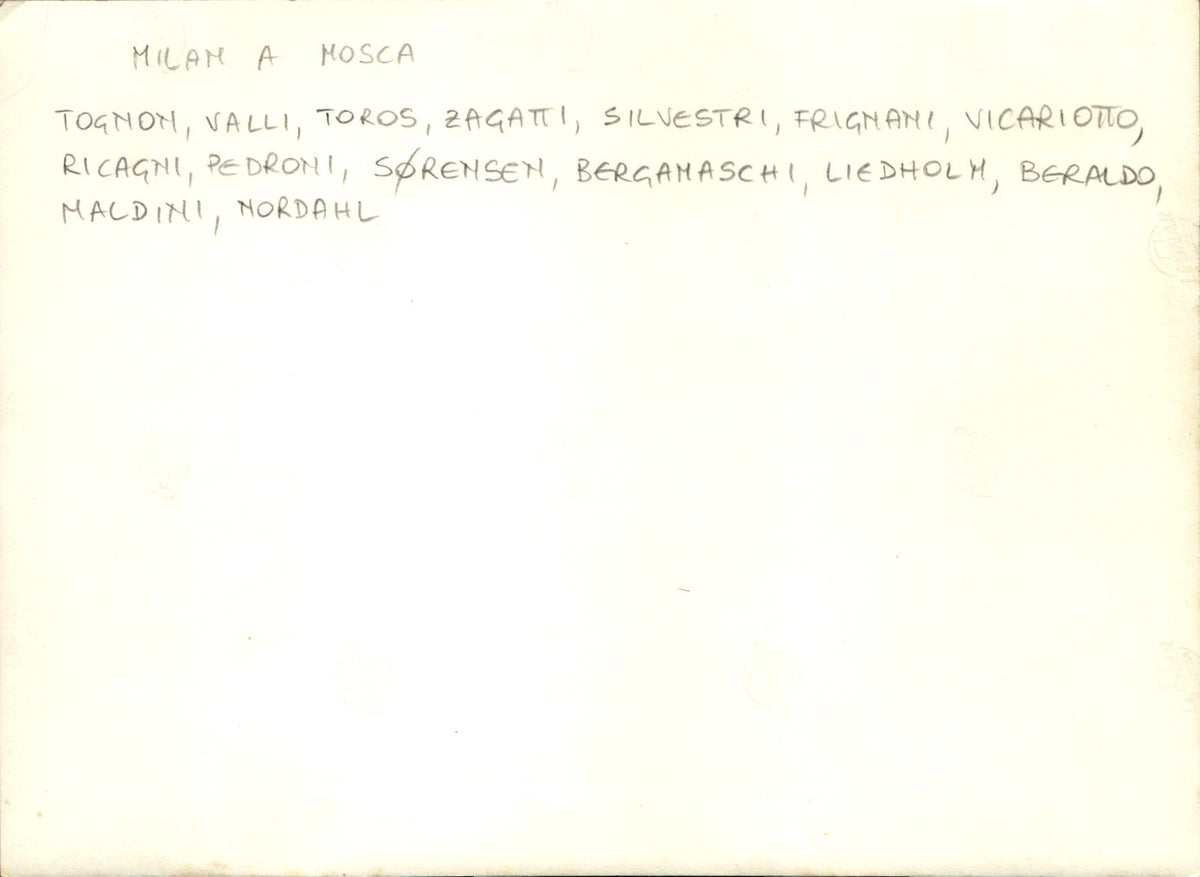 MILAN A MOSCA
TOGNON, VALLI, TOROS, ZAGATTI, SILVESTRI, FRIGNANI, VICARIOTTO,
RICAGNI, PEDRONI, SØRENSEN, BERGAMASCHI, LIEDHOLM, BERALDO,
MALDINI, NORDAHL